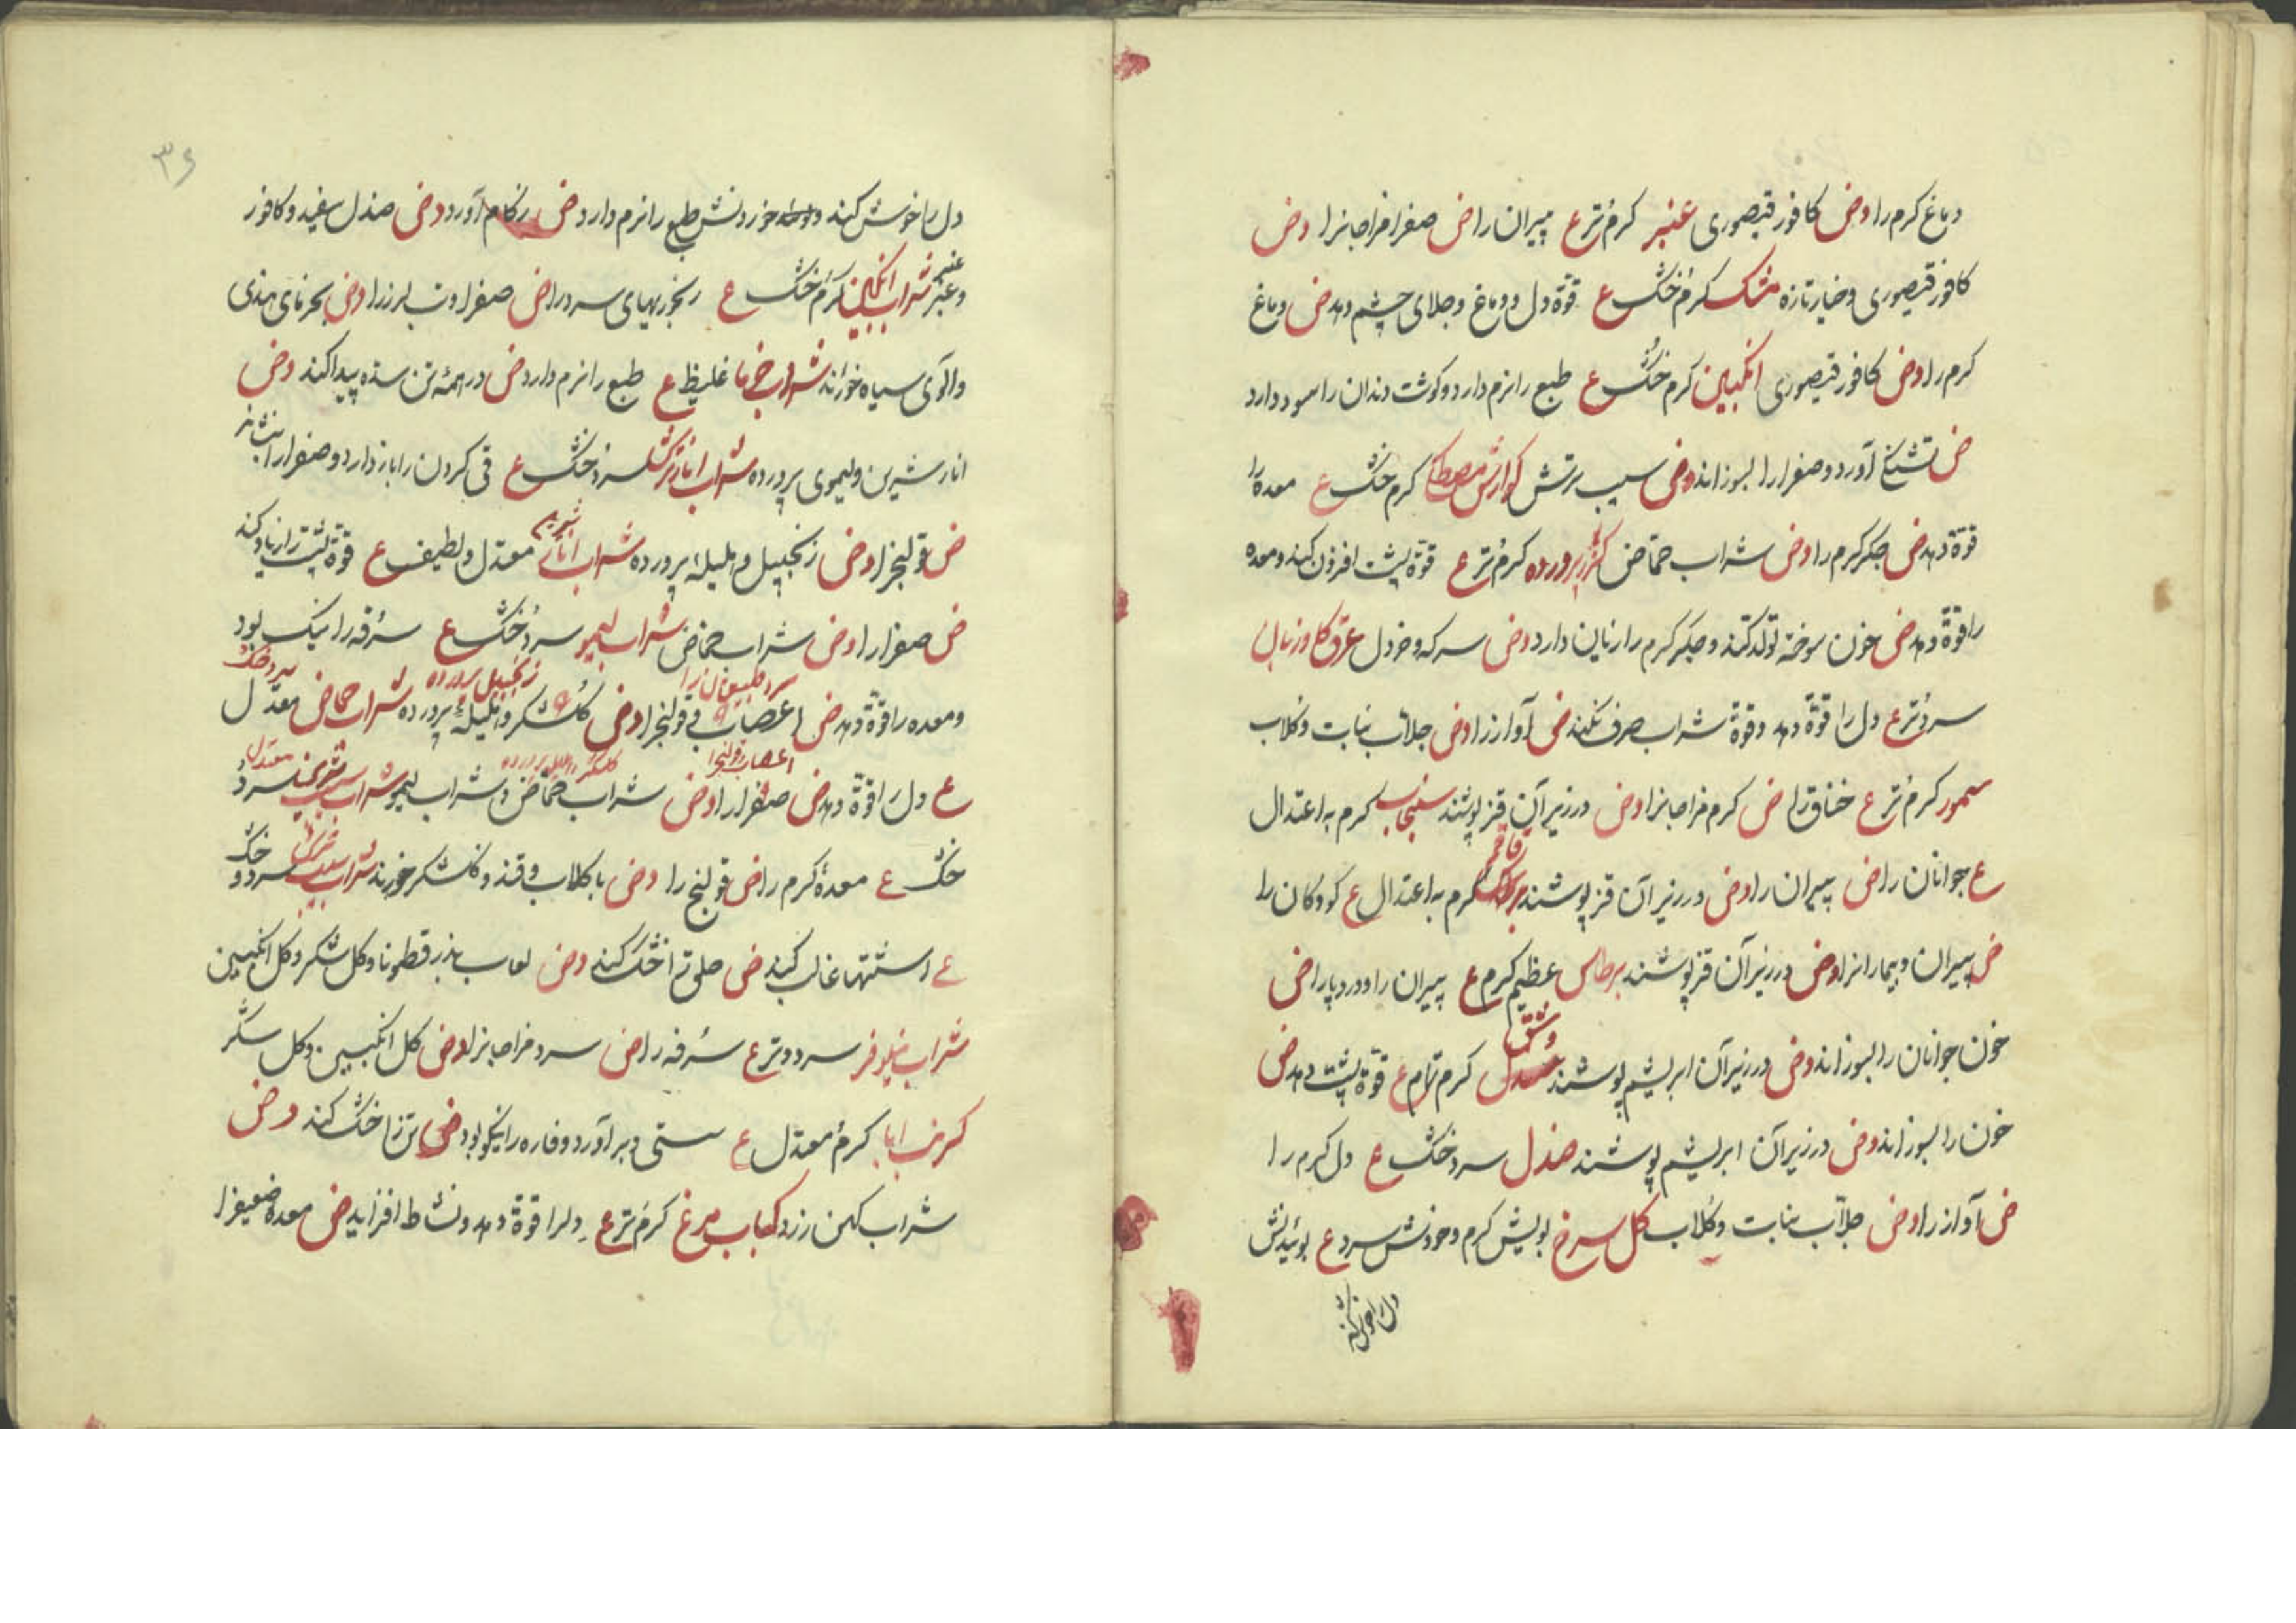 دماغ گرم را وض کافور قیصوری عنبر گرم تر ع پیران را ض صفرا مزاجانرا وض
کافور قیصوری و خیار تازه مشک گرم خشک ع قوة دل و دماغ و جلای چشم دهد ض دماغ
گرم را وض کافور قیصوری انگبین گرم خشک ع طبع را نرم دارد و گوشت دندان را سود دارد
ض تشنگی آورد و صفرا را بسوزاند وض سیب ترش گوارش مصطکا گرم خشک ع معده را
قوة دهد ض جگر گرم را وض شراب حماض گزر پرورده گرم تر ع قوة پشت افزون کند و معده
را قوة دهد ض خون سوخته تولد کند و جگر گرم را زیان دارد وض سرکه و خردل عرق گاوزبان
سرد تر ع دل را قوة دهد و قوة شراب صرف نکند ض آواز را وض جلاب نبات و گلاب
سمور گرم تر ع خناق را ض گرم مزاجانرا وض در زیر آن قز پوشند سنجاب گرم باعتدال
ع جوانان را ض پیران را وض در زیر آن قز پوشند قاقم گرم باعتدال ع کودکان را
ض پیران و بیمارانرا وض در زیر آن قز پوشند برطاس عظیم گرم ع پیران را و درد پا را ض
خون جوانان را بسوزاند وض در زیر آن ابریشم پوشند وشق گرم نرم ع قوة پشت دهد ض
خون را بسوزاند وض در زیر آن ابریشم پوشند صندل سرد خشک ع دل گرم را
ض آواز را وض جلاب نبات و گلاب گل سرخ بویش گرم و خوردنش سرد ع بوئیدنش
دل را خوش کند
۳۶
دل را خوش کند و خوردنش طبع را نرم دارد ض زکام آورد وض صندل سفید و کافور
و عنبر شراب انگبین گرم خشک ع رنجوریهای سرد را ض صفرا و تب لرز را وض خرمای هندی
و آلوی سیاه خورند شراب خرما غلیظ ع طبع را نرم دارد ض در همه تن سده پیدا کند وض
انار شیرین و لیموی پرورده شراب انار ترش سرد خشک ع قی کردن را باز دارد و صفرا را بنشاند
ض قولنج را وض زنجبیل و هلیلهٔ پرورده شراب انار شیرین معتدل و لطیف ع قوة پشت را زیاد کند
ض صفرا را وض شراب حماض شراب لیمو سرد خشک ع سرفه را نیک بود
و معده را قوة دهد ض اعصاب و قولنج را وض گلشکر و هلیلهٔ پرورده شراب حماض معتدل
ع دل را قوة دهد ض صفرا را وض شراب حماض و شراب لیمو شراب سیب شیرین سرد
خشک ع معدهٔ گرم را ض قولنج را وض با گلاب و قند و گلشکر خورند شراب سیب ترش سرد و خشک
ع اشتها غالب کند ض حلق را خشک کند وض لعاب بذر قطونا و گل شکر و گل انگبین
شراب نیلوفر سرد و تر ع سرفه را ض سرد مزاجانرا وض گل انگبین و گل شکر
کرنب ابا گرم معتدل ع مستی دیر آورد و فاره را نیکو بود ض تن را خشک کند وض
شراب کهن زرد کباب مرغ گرم تر ع دل را قوة دهد و نشاط افزاید ض معدهٔ ضعیف را